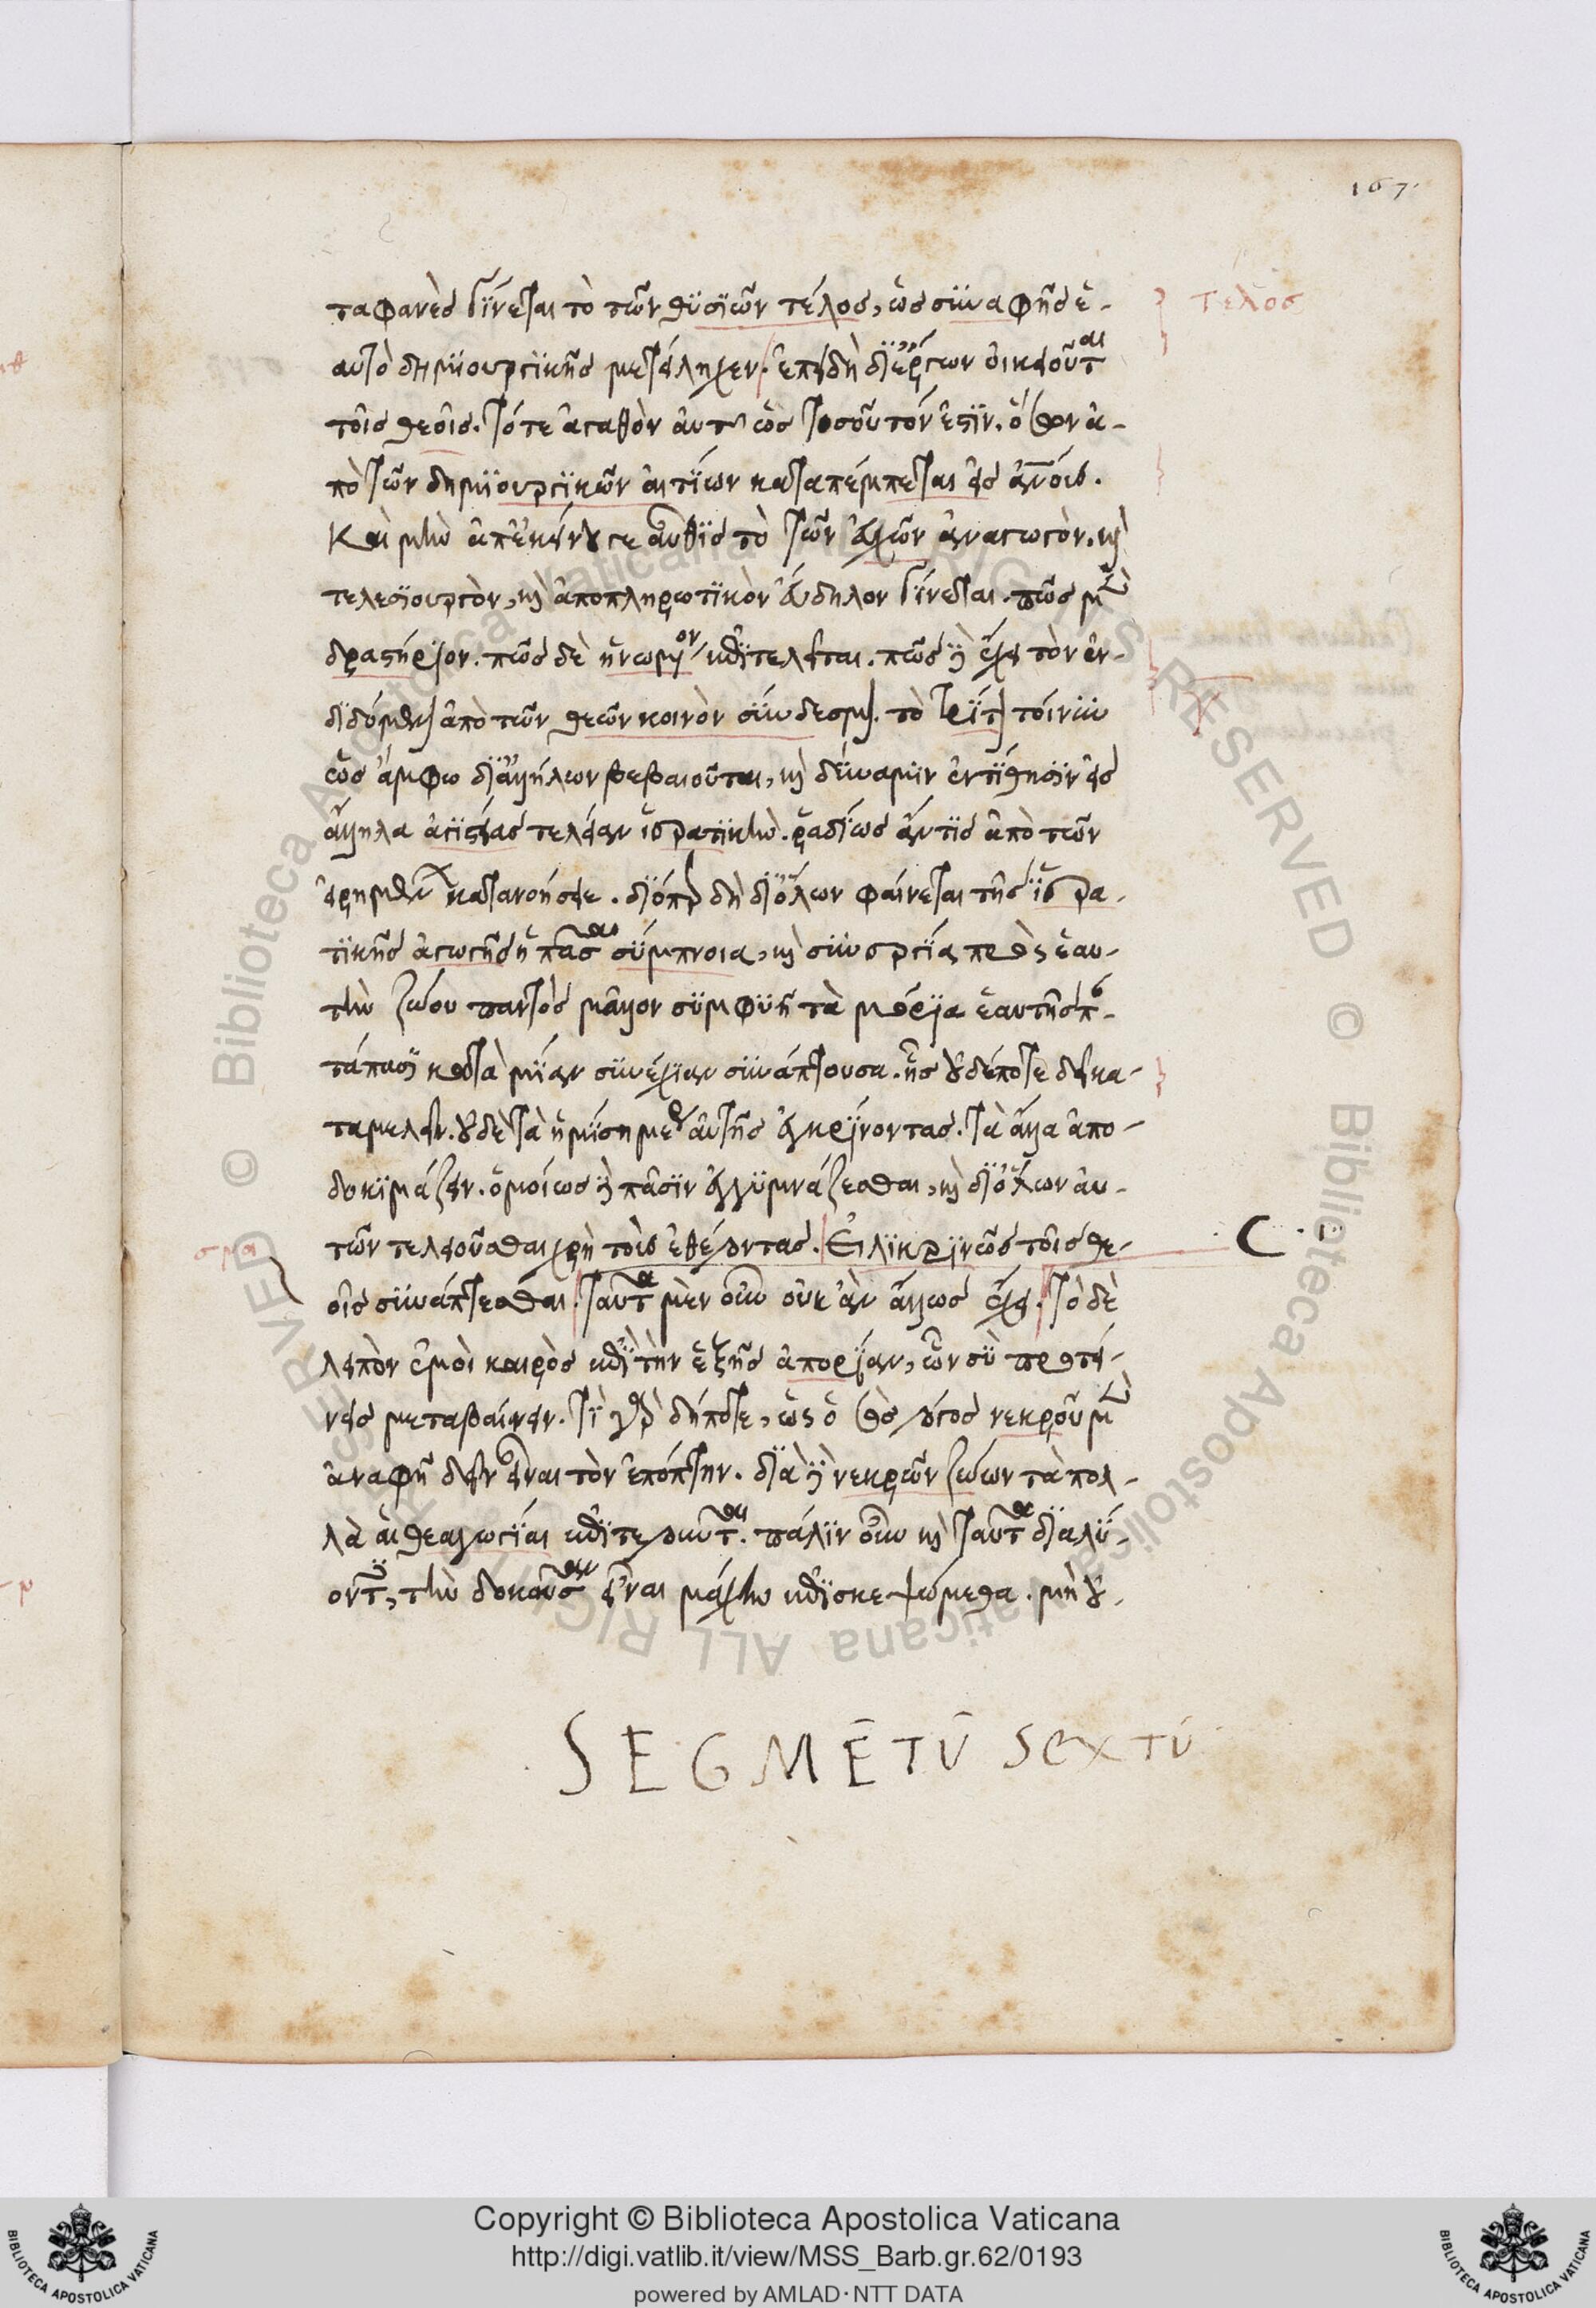 167.
ταφανὲς γίνεται τὸ τῶν θυσιῶν τέλος, ὡς συναφῆς ἐ-
Τέλος
αυτὸ δημιουργικῆς μετείληχεν. ἐπειδὴ δι' ἔργων οἰκειοῦται
τοῖς θεοῖς. τότε ἀγαθὸν αὐτῆς τοσοῦτόν ἐστιν. ὅσον ἀ-
πὸ τῶν δημιουργικῶν αἰτίων καταπέμπεται εἰς ἀνους.
Καὶ μὴν ἀπ' ἐκείνου γε αὖθις τὸ τῶν εὐχῶν ἀναγωγὸν. καὶ
τελεσιουργὸν, καὶ ἀποπληρωτικὸν εὔδηλον γίνεται. πῶς μὲν
δραστήριον. πῶς δὲ ἡνωμένον ἐπιτελεῖται. πῶς δὲ ἔχει τὸν ἐν-
διδόμενον ἀπὸ τῶν θεῶν κοινὸν σύνδεσμον. τὸ τρίτον τοίνυν
ὡς ἄμφω δι' ἀλλήλων βεβαιοῦται, καὶ δύναμιν ἐντίθησιν εἰς
ἄλληλα ἁγιστείας τελείαν ἱερατικὴν. ῥαδίως ἄν τις ἀπὸ τῶν
εἰρημένων κατανοήσειε. διόπερ δὴ δι' ὅλων φαίνεται τῆς ἱερα-
τικῆς ἀγωγῆς ἡ πᾶσα σύμπνοια, καὶ συνεργία πρὸς ἑαυ-
τὴν ζώου παντὸς μᾶλλον συμφυῆ τὰ μόρια ἑαυτῆς παν-
τάπασι κατὰ μίαν συνέχειαν συνάπτουσα. ἧς οὐδέποτε δεῖ κα-
ταμελεῖν. οὐδὲ τὰ ἡμίση μέρη αὐτῆς ἐγκρίνοντας. τὰ ἄλλα ἀπο-
δοκιμάζειν. ὁμοίως δὲ πᾶσιν ἐγγυμνάζεσθαι, καὶ δι' ὅλων αὐ-
τῶν τελειοῦσθαι χρὴ τοὺς ἐθέλοντας. Εἰλικρινῶς τοῖς θε-
οῖς συνάπτεσθαι. ταῦτα μὲν οὖν οὐκ ἂν ἄλλως ἔχοι. τὸ δὲ
λοιπὸν ἐμοὶ καιρὸς ἐπὶ τὴν ἑξῆς ἀπορίαν, ὧν σὺ προτεί-
νεις μεταβαίνειν. τί γὰρ δήποτε, ὡς ὁ σὸς λόγος νεκροῦ μὲν
ἀναφῆ δεῖν εἶναι τὸν ἐπόπτην. διὰ δὲ νεκρῶν ζώων τὰ πολ-
λὰ αἱ θεαγωγίαι ἐπιτελοῦνται. πάλιν οὖν καὶ ταῦτα διαλύ-
οντες, τὴν δοκοῦσαν εἶναι μάχην ἐπισκεψώμεθα. μὴ οὐ-
SEGMĒTŪ SEXTŪ
Copyright © Biblioteca Apostolica Vaticana
http://digi.vatlib.it/view/MSS_Barb.gr.62/0193
powered by AMLAD · NTT DATA